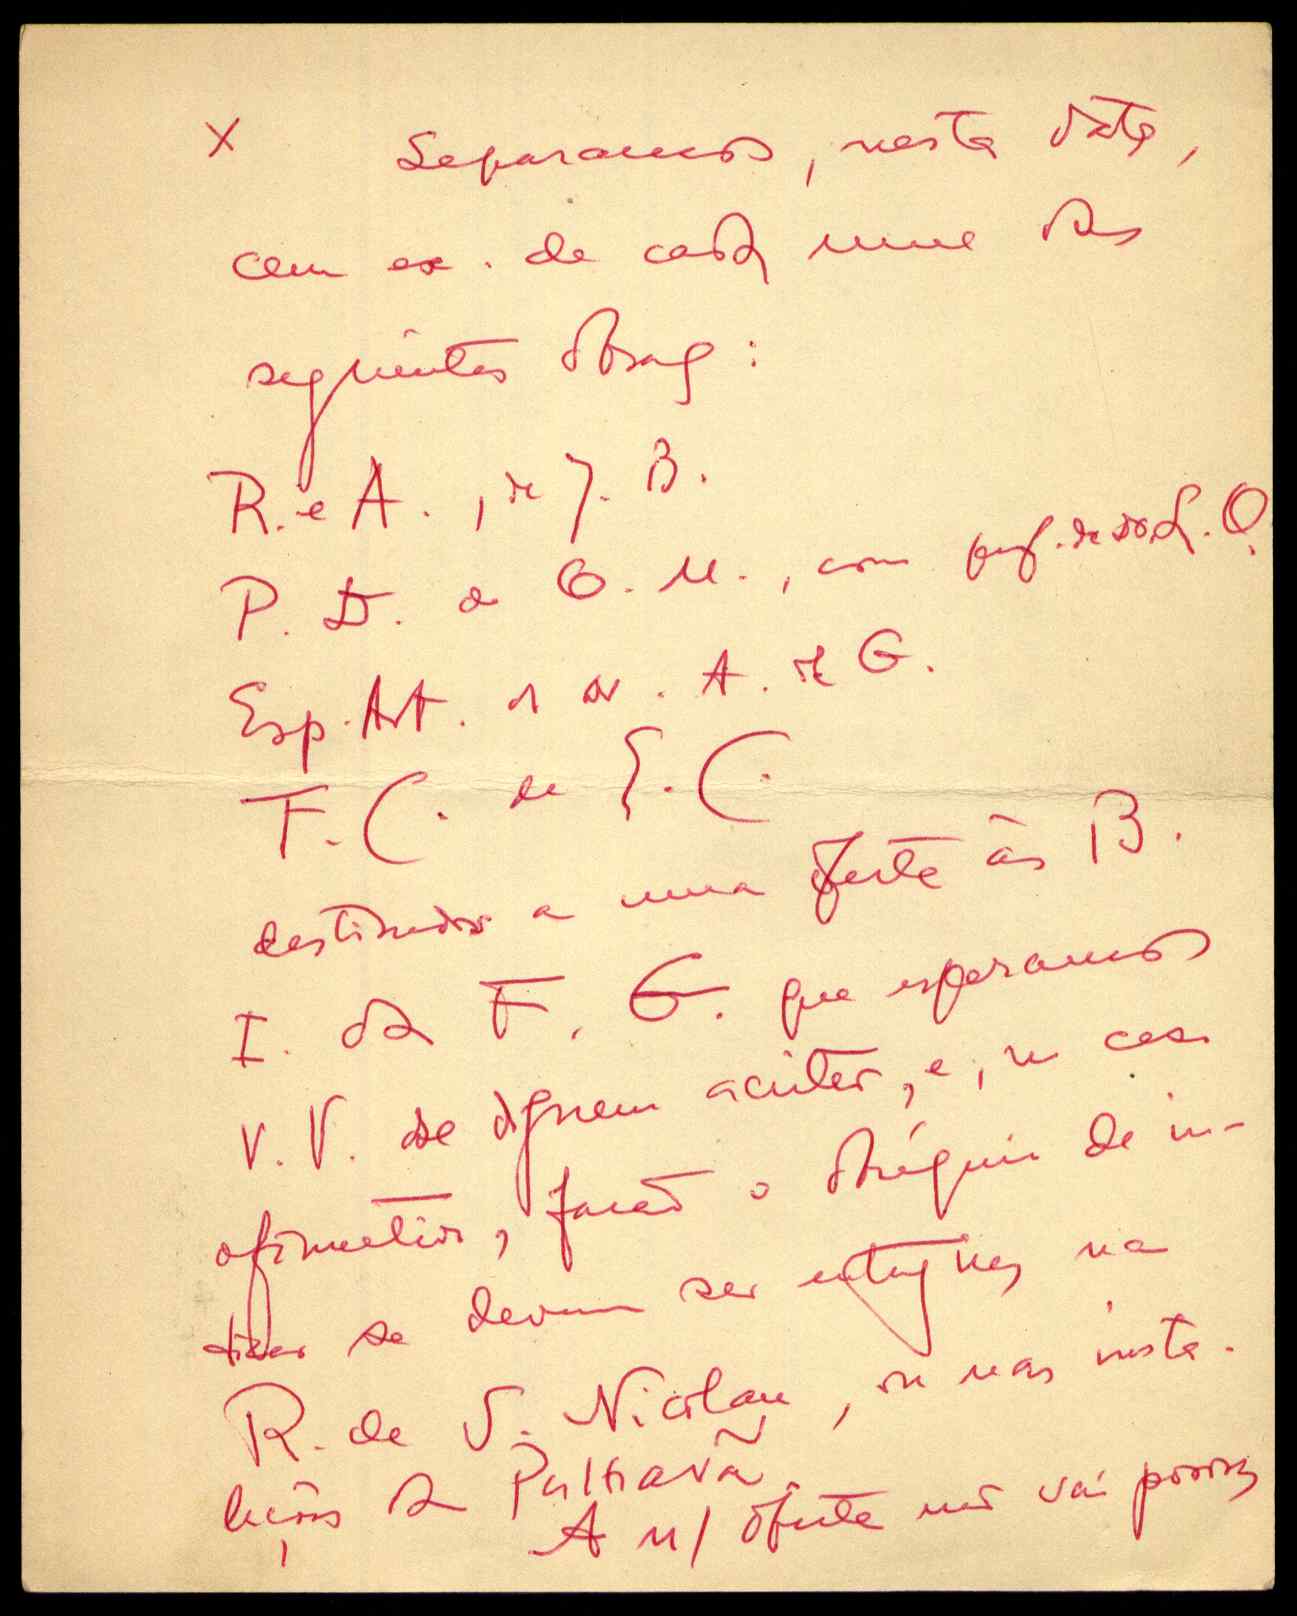 X Separamos, nesta data,
cem ex. de cada uma das
seguintes obras:
R. e A., de J. B.
P. D. de O. M., com pref. de L. O.
Esp. Art. A. de G.
F. C. de E. C.
destinados a uma oferta às B.
I. da F. G. que esperamos
V. V. se dignem aceitar, e, no caso
afirmativo, façam o obséquio de in-
dicar se devem ser entregues na
R. de S. Nicolau, ou nas insta-
lações da Palhavã.
A n/ oferta não vai